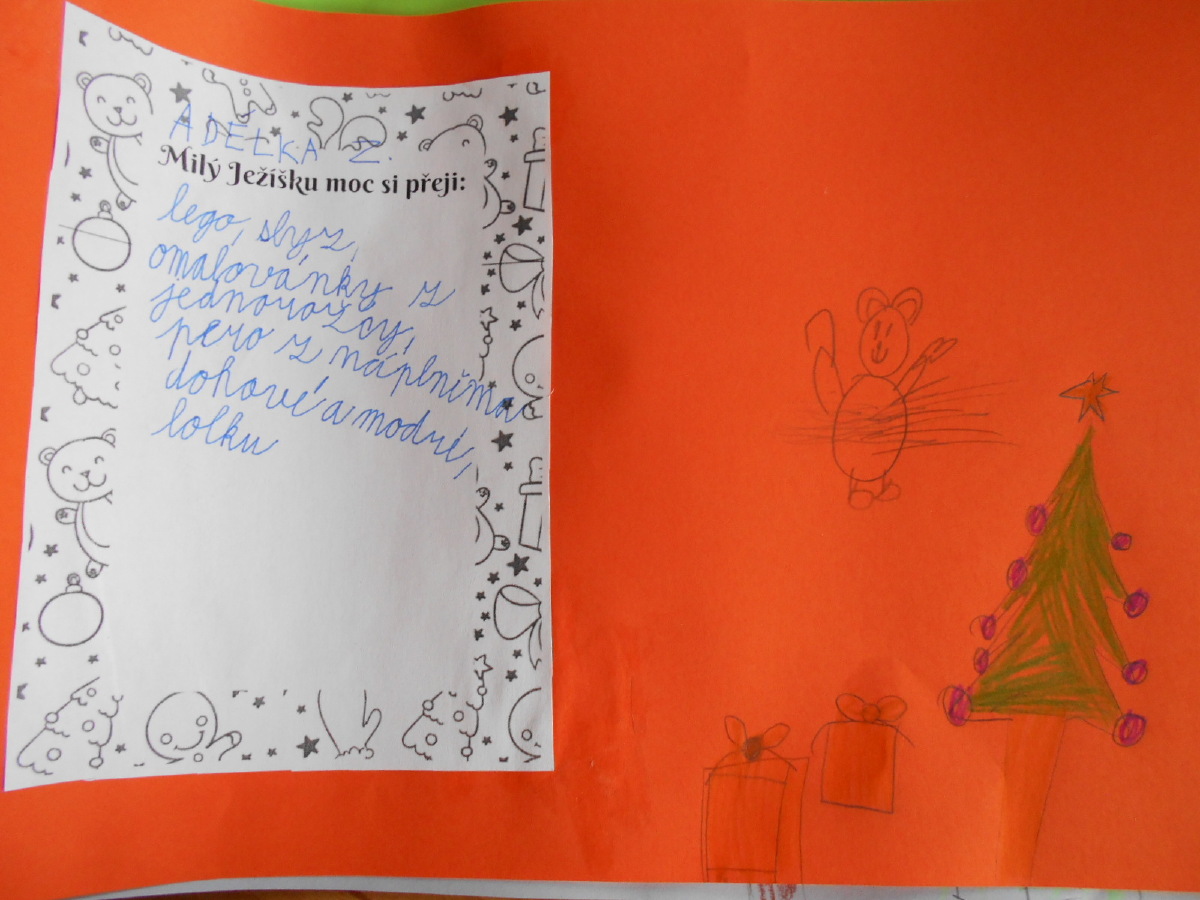 ADÉLKA Z.
Milý Ježíšku moc si přeji:
lego, slyz,
omalovánky z
jednorožcy,
pero z náplněma
dohové a modré,
lolku